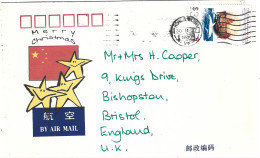 Merry
Christmas
Mr + Mrs H. Cooper,
9, Kings Drive,
Bishopston,
Bristol.
England,
U.K.
航空
BY AIR MAIL
邮政编码